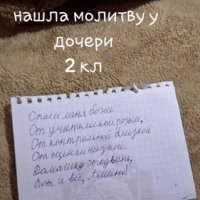 нашла молитву у
дочери
2 кл
Спаси меня боже
От учительской рожи,
От контрольной близкой
От оценки низкой.
Домашку отодвинь,
Вот и всё, Аминь!